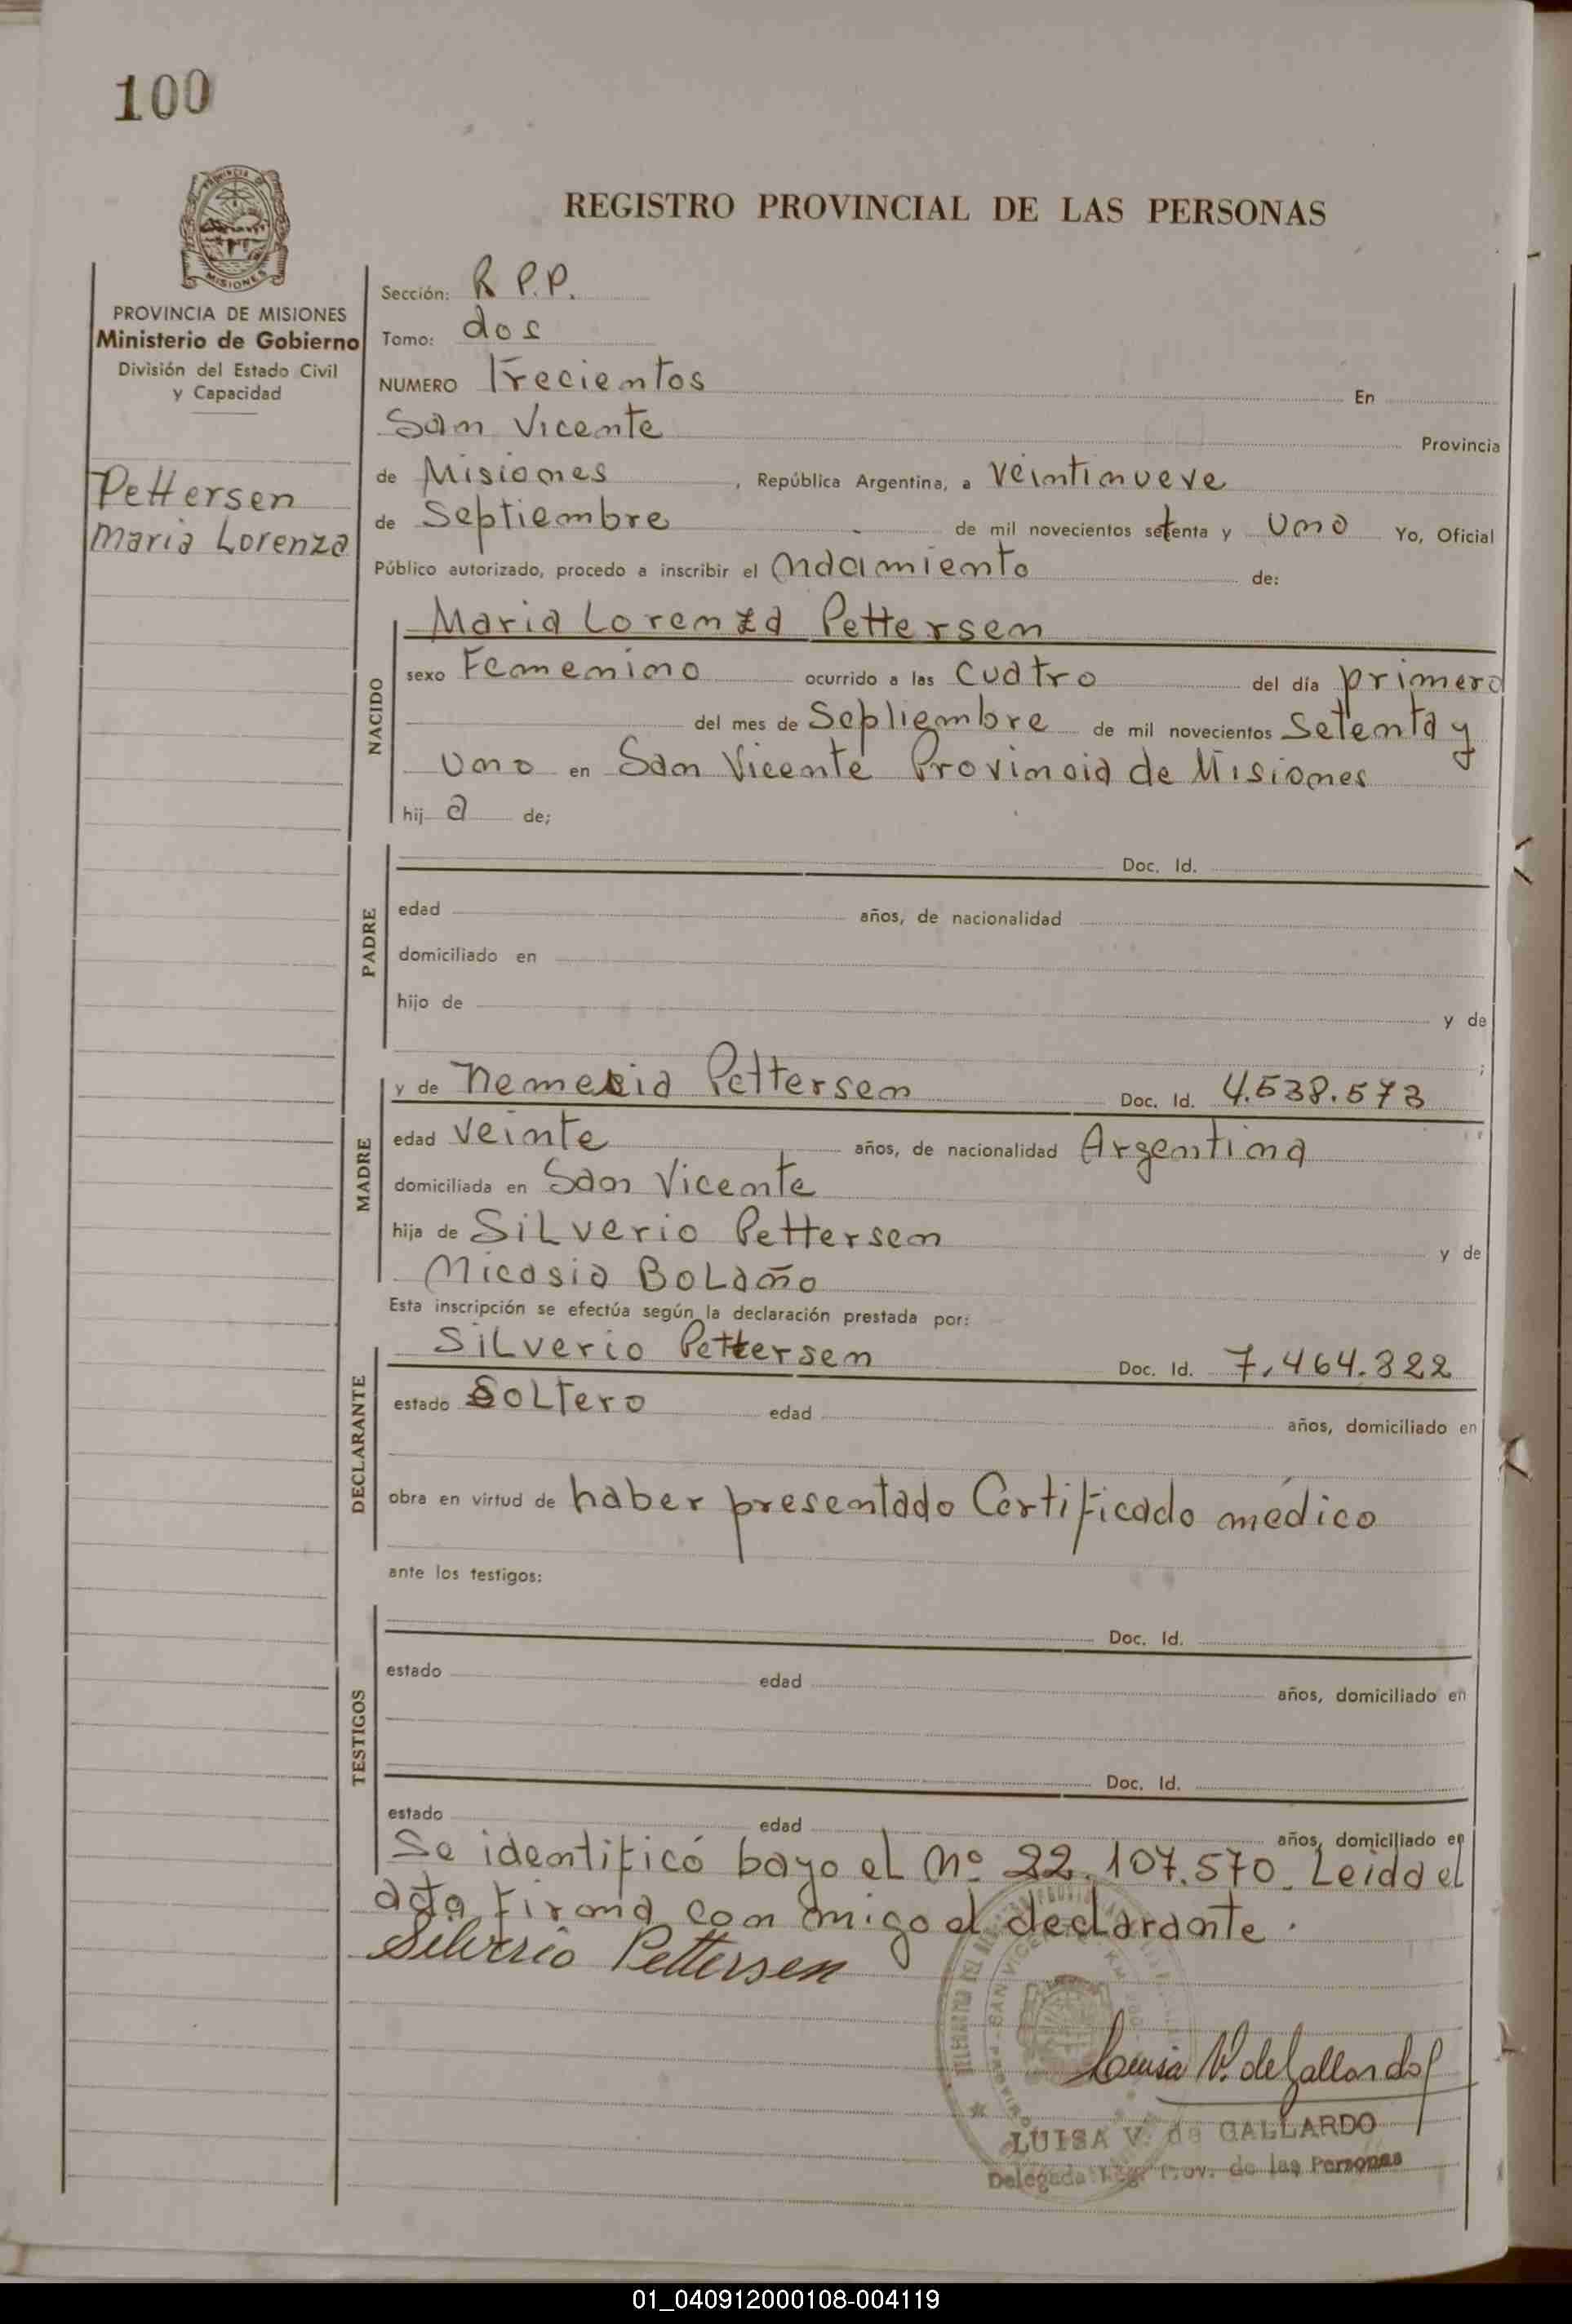 100
REGISTRO PROVINCIAL DE LAS PERSONAS
PROVINCIA DE MISIONES
Ministerio de Gobierno
División del Estado Civil
y Capacidad
Pettersen
Maria Lorenza
Sección: R P.P.
Tomo: dos
NUMERO Trecientos En
San Vicente Provincia
de Misiones, República Argentina, a Veintinueve
de Septiembre de mil novecientos setenta y Uno Yo, Oficial
Público autorizado, procedo a inscribir el nacimiento de:
NACIDO
Maria Lorenza Pettersen
sexo Femenino ocurrido a las Cuatro del día primero
del mes de Septiembre de mil novecientos Setenta y
Uno en San Vicente Provincia de Misiones
hij a de;
PADRE
Doc. Id.
edad años, de nacionalidad
domiciliado en
hijo de y de
;
MADRE
y de Nemesia Pettersen Doc. Id. 4.538.573
edad Veinte años, de nacionalidad Argentina
domiciliada en San Vicente
hija de Silverio Pettersen y de
Nicasia Bolaño
Esta inscripción se efectúa según la declaración prestada por:
DECLARANTE
Silverio Pettersen Doc. Id. 7.464.822
estado Soltero edad años, domiciliado en
obra en virtud de haber presentado Certificado médico
ante los testigos:
TESTIGOS
Doc. Id.
estado edad años, domiciliado en
Doc. Id.
estado edad años, domiciliado en
Se identificó bajo el Nº 22.107.570. Leida el
acta firma con migo el declarante.
Silverio Pettersen
Luisa V. de Gallardo
LUISA V. de GALLARDO
Delegada Reg. Prov. de las Personas
01_040912000108-004119